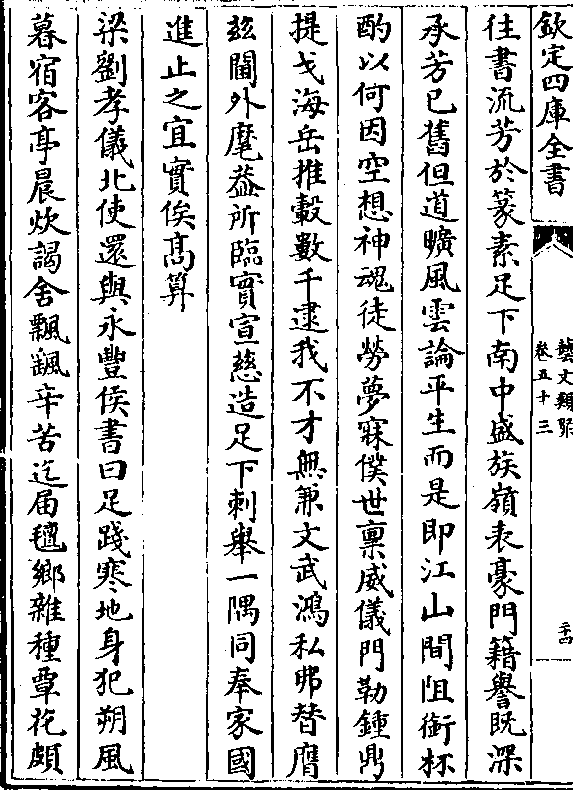 欽定四庫全書
藝文類聚
卷五十三
二十四
往書流芳於篆素足下南中盛族嶺表豪門籍譽既深
承芳已舊但道曠風雲論平生而是即江山間阻銜杯
酌以何因空想神魂徒勞夢寐僕世稟威儀門勒鍾鼎
提戈海岳推轂數千逮我不才無兼文武鴻私弗替膺
兹閫外麾葢所臨實宣慈造足下刺舉一隅同奉家國
進止之宜實俟髙算
梁劉孝儀北使還與永豐侯書曰足踐寒地身犯朔風
暮宿客亭晨炊謁舍飄颻辛苦迄届氊鄉雜種覃化頗